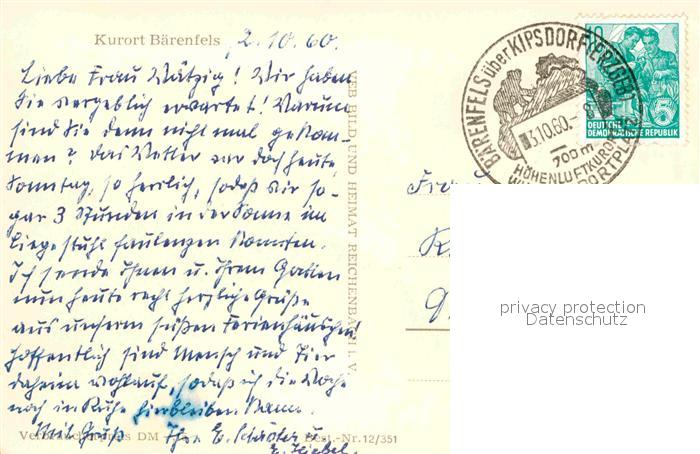 Kurort Bärenfels 2.10.60.
Liebe Frau Wätzig! Wir haben
Sie vergeblich erwartet! Warum
sind Sie denn nicht mal gekom-
men? Das Wetter war doch heute,
Sonntag, so herrlich, sodaß wir so-
gar 3 Stunden in der Sonne im
Liegestuhl faulenzen konnten.
Ich sende Ihnen u. Ihrem Gatten
nun heute recht herzliche Grüße
aus unserm süßen Ferienhäuschen!
Hoffentlich sind Mensch und Tier
daheim wohlauf, sodaß ich die Woche
noch in Ruhe hierbleiben kann.
Mit Gruß Ihre E. Schäfer u.
Verbraucherpreis DM
Best.-Nr. 12/351
VEB BILD UND HEIMAT REICHENBACH I. V.
BÄRENFELS über KIPSDORF (ERZGEB)
3.10.60.-
700 m
HÖHENLUFTKURORT
DEUTSCHE
DEMOKRATISCHE REPUBLIK
5
privacy protection
Datenschutz